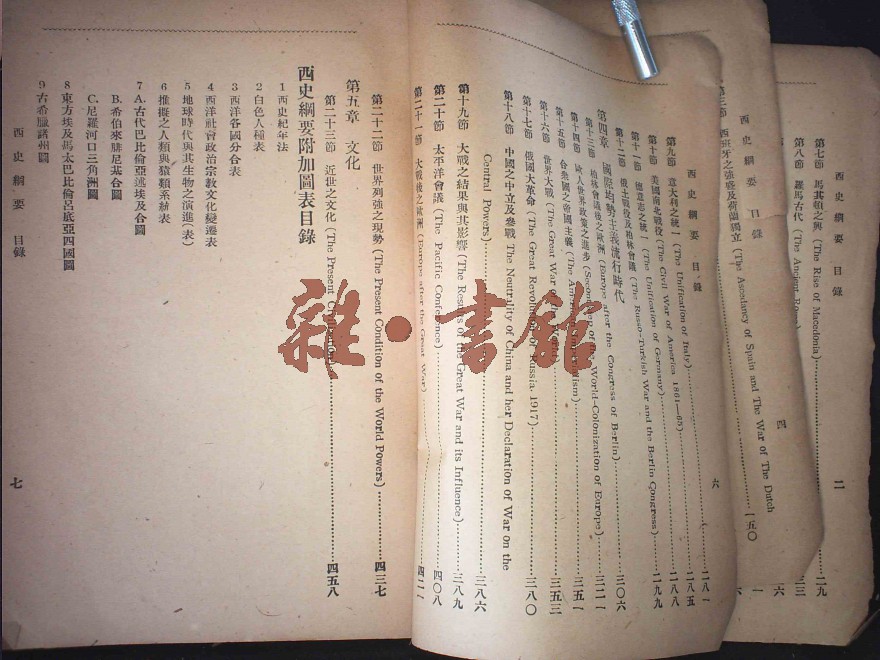 西史綱要 目錄
二
第七節 馬其頓之興 (The Rise of Macedonia)……二九
第八節 羅馬古代 (The Ancient Rome)……三三
西史綱要 目錄
四
第三節 西班牙之強盛及荷蘭獨立 (The Ascedancy of Spain and The War of The Dutch
……一五〇
西史綱要 目錄
六
第九節 意大利之統一 (The Unification of Italy)……
第十節 美國南北戰役 (The Civil War of America 1861—65)……
第十一節 德意志之統一 (The Unification of Germany)……
第十二節 俄土戰役及柏林會議 (The Russo-Turkish War and the Berlin Congress)……
第四章 國際均勢主義流行時代
第十三節 柏林會議後之歐洲 (Europe after the Congress of Berlin)……三〇六
第十四節 歐人世界政策之進步 (Second step of the World-Colonization of Europe)……
第十五節 合衆國之帝國主義 (The American Imperialism)……
第十六節 世界大戰 (The Great War of the World)……三五三
第十七節 俄國大革命 (The Great Revolution of Russia 1917)……三八〇
第十八節 中國之中立及參戰 The Neutrality of China and her Declaration of War on the
Central Powers)……三八六
第十九節 大戰之結果與其影響 (The Results of the Great War and its Influence)……三八九
第二十節 太平洋會議 (The Pacific Conference)……四〇八
第二十一節 大戰後之歐洲 (Europe after the Great War)……四二一
第二十二節 世界列強之現勢 (The Present Condition of the World Powers)……四三七
第五章 文化
第二十三節 近世之文化 (The Present Civilization)……四五八
西史綱要附加圖表目錄
1 西史紀年法
2 白色人種表
3 西洋各國分合表
4 西洋社會政治宗教文化變遷表
5 地球時代與其生物之演進(表)
6 推擬之人類與猿類系統表
7 A.古代巴比倫亞述埃及合圖
B.希伯來腓尼基合圖
C.尼羅河口三角洲圖
8 東方埃及馬太巴比倫呂底亞四國圖
9 古希臘諸州圖
西史綱要 目錄
七
雜·書館